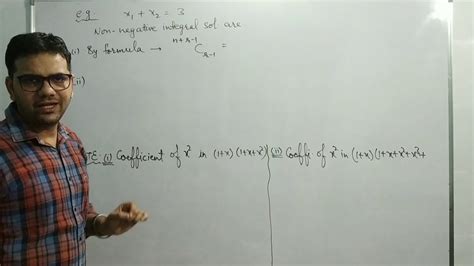 E.g. x₁ + x₂ = 3
Non-negative integral sol are
(i) By formula → ⁿ⁺ʳ⁻¹Cᵣ₋₁ =
(ii)
(i) Coefficient of x² in (1+x)(1+x+x²)
(ii) Coeffi of x² in (1+x)(1+x+x²+x³+